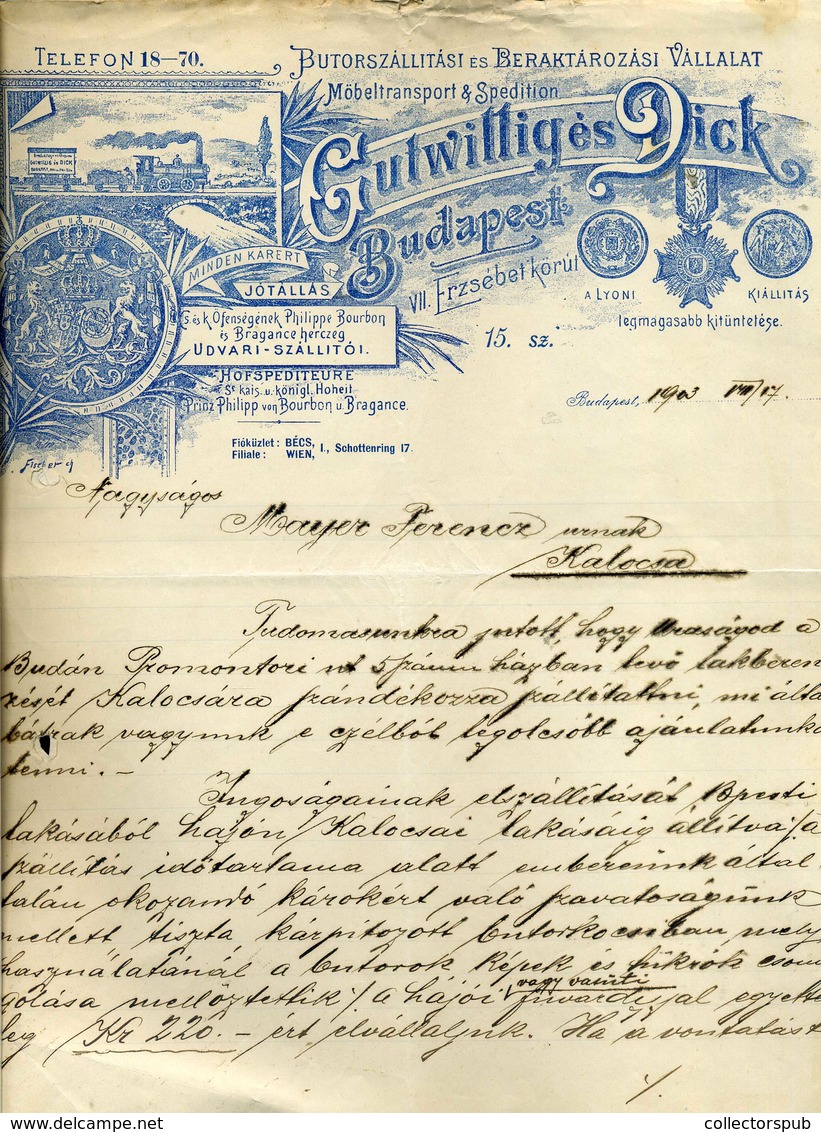 TELEFON 18—70.
BUTORSZÁLLITÁSI ÉS BERAKTÁROZÁSI VÁLLALAT
Möbeltransport & Spedition
Gutwillig és Dick
Budapest
VII. Erzsébet körút
15. sz.
GUTWILLIG és DICK
MINDEN KÁRÉRT
JÓTÁLLÁS
A LYONI KIÁLLITÁS
legmagasabb kitüntetése.
Cs. és k. Őfenségének Philippe Bourbon
és Bragance herczeg
UDVARI-SZÁLLITÓI.
HOFSPEDITEURE
Sr kais. u. königl. Hoheit
Prinz Philipp von Bourbon u. Bragance.
Fióküzlet: BÉCS, I., Schottenring 17.
Filiale: WIEN,
Budapest, 1903 VIII/17.
Nagyságos
Mayer Ferencz urnak
Kalocsa
Tudomásunkra jutott, hogy Uraságod a
Budán Promontori ut 5 számu házban levő lakberen
zését Kalocsára szándékozza szállittatni, mi által
bátrak vagyunk e czélból legolcsóbb ajánlatunkat
tenni. –
Ingoságainak elszállitását Bpesti
lakásából hajón Kalocsai lakásáig állitva /: a
szállitás időtartama alatt embereink által
talán okozandó károkért való szavatoságunk
mellett tiszta, kárpitozott butorkocsiban mely
használatánál a butorok képek és tükrök csoma
golása mellőztetik :/ a hajói vagy vasúti fuvardijjal egyetem
leg Kr 220. – ért elvállaljuk. Ha a vontatást
./.
collectorspub